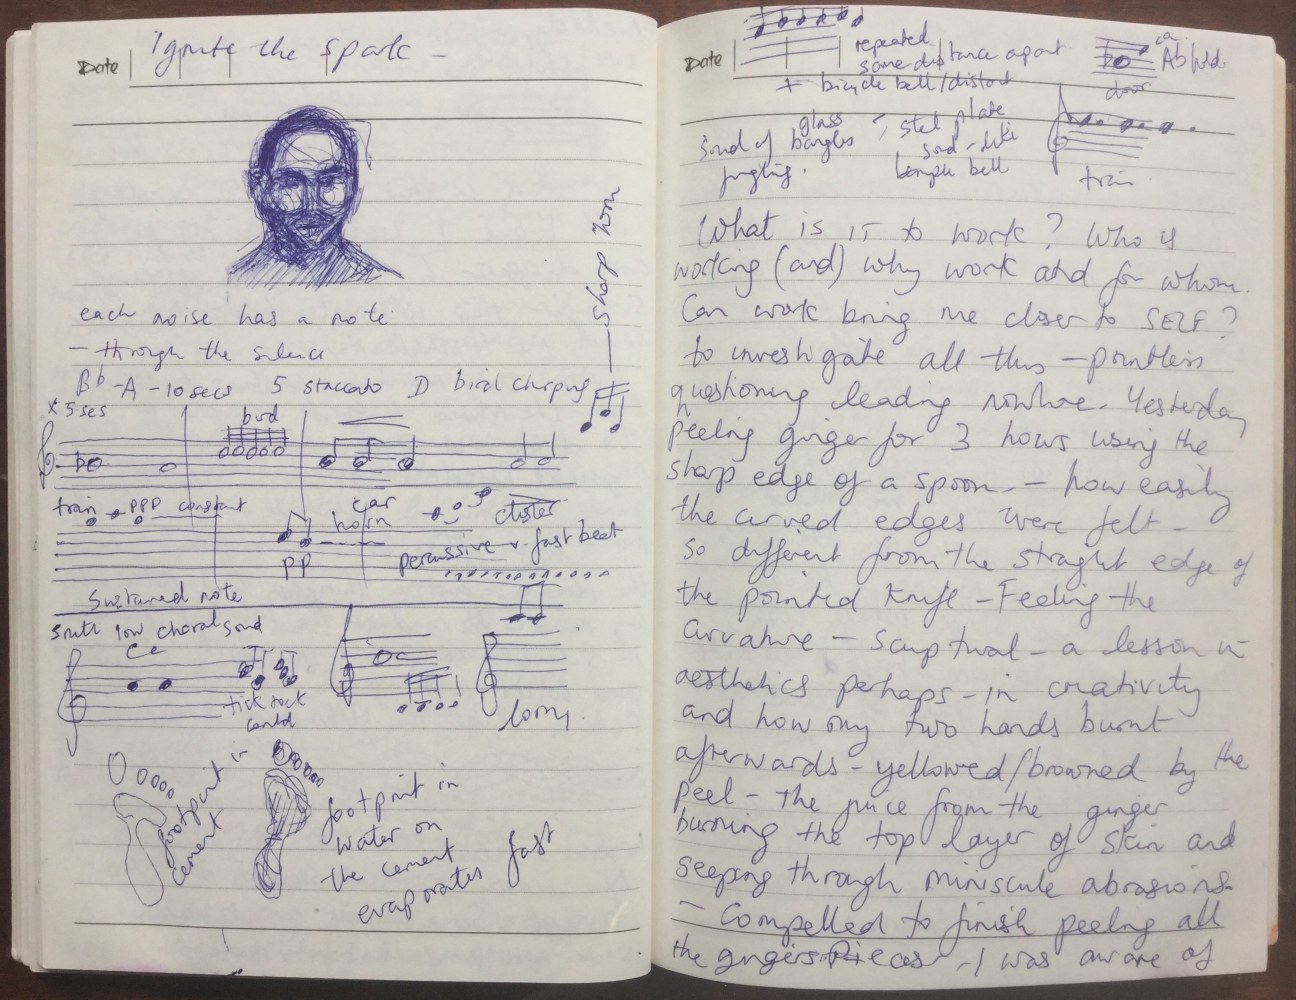 Date
ignite the spark -
each noise has a note
- through the silence
Bb -A -10 secs 5 staccato D bird chirping
sharp horn
x 5 secs
bird
train ppp constant
car
horn
cluster
pp
percussive fast beat
Sustained note
low choral sound
tick tock
lorry.
footprint in
cement
footprint in
water on
the cement
evaporates fast
Date
repeated
same distance apart
+ bicycle bell/distant
Ab
door
sound of glass
bangles
jingling.
steel plate
sound-like
temple bell
train
What is IT to work? Who is
working (and) why work and for whom.
Can work bring me closer to SELF?
to investigate all this - pointless
questioning leading nowhere. Yesterday
peeling ginger for 3 hours using the
sharp edge of a spoon. - how easily
the curved edges were felt -
so different from the straght edge of
the pointed knife - Feeling the
curvature - sculptural - a lesson in
aesthetics perhaps - in creativity
and how my two hands burnt
afterwards - yellowed/browned by the
peel - the juice from the ginger
burning the top layer of skin and
seeping through miniscule abrasions.
- Compelled to finish peeling all
the gingers pieces - I was aware of